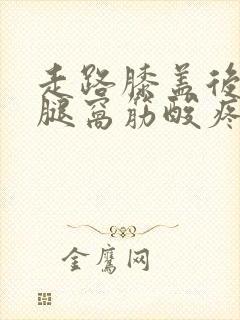 走路膝盖後
腿窝筋酸疼
金鹰网